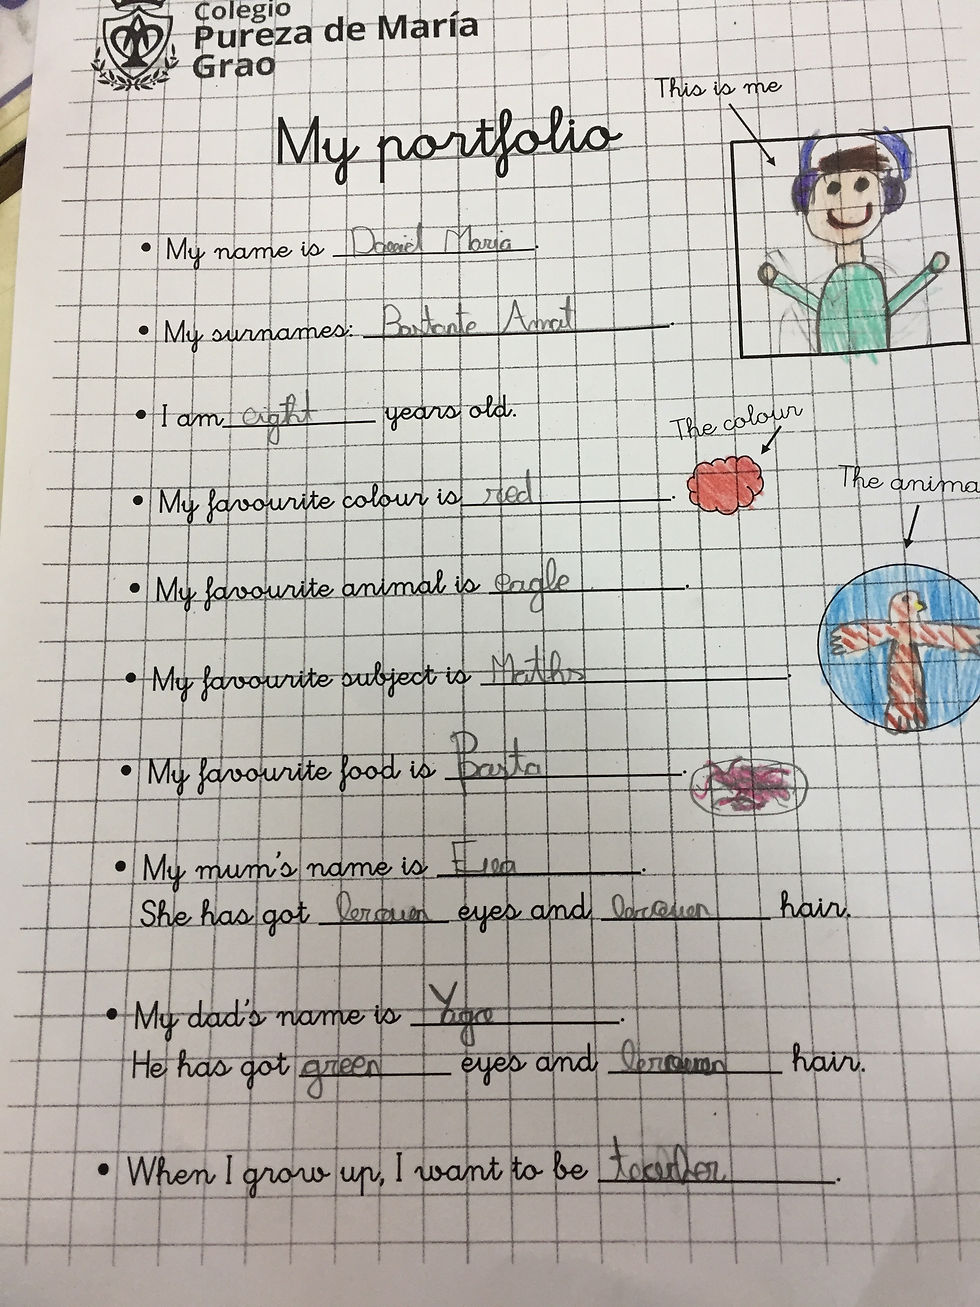 Colegio
Pureza de María
Grao
This is me
My portfolio
• My name is Daniel María.
• My surnames: Bastante Amat.
• I am eight years old.
The colour
• My favourite colour is red.
The anima
• My favourite animal is eagle.
• My favourite subject is Maths.
• My favourite food is Pasta.
• My mum's name is Eva.
She has got brown eyes and brown hair.
• My dad's name is Yago.
He has got green eyes and brown hair.
• When I grow up, I want to be